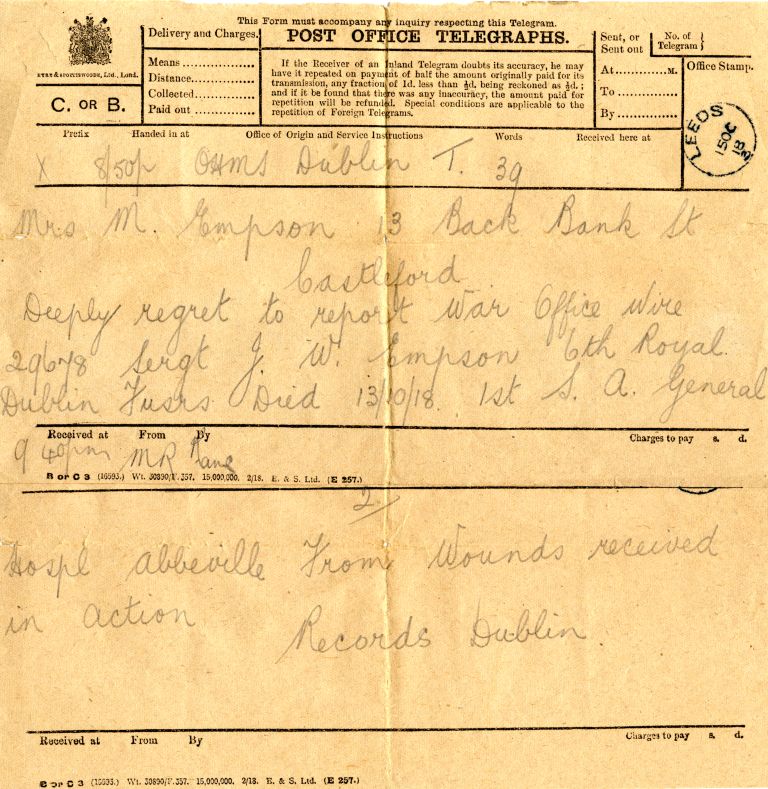 This Form must accompany any inquiry respecting this Telegram.
POST OFFICE TELEGRAPHS.
EYRE & SPOTTISWOODE, Ltd., Lond.
C. OR B.
Delivery and Charges.
Means
Distance
Collected
Paid out
If the Receiver of an Inland Telegram doubts its accuracy, he may
have it repeated on payment of half the amount originally paid for its
transmission, any fraction of 1d. less than ½d. being reckoned as ½d.;
and if it be found that there was any inaccuracy, the amount paid for
repetition will be refunded. Special conditions are applicable to the
repetition of Foreign Telegrams.
Sent, or
Sent out
No. of
Telegram
At M.
To
By
Office Stamp.
LEEDS
15 OC
18
Prefix Handed in at Office of Origin and Service Instructions Words Received here at
X 8/50p OHMS Dublin T. 39
Mrs M. Empson 13 Back Bank St
Castleford
Deeply regret to report War Office Wire
29678 Sergt J. W. Empson 6th Royal
Dublin Fusrs Died 13/10/18. 1st S. A. General
Received at From By Charges to pay s. d.
9 40pm MR
B or C 3 (16593.) Wt. 30890/F.357. 15,000,000. 2/18. E. & S. Ltd. (E 257.)
2/
Hospl Abbeville From Wounds received
in action
Records Dublin.
Received at From By Charges to pay s. d.
B or C 3 (16593.) Wt. 30890/F.357. 15,000,000. 2/18. E. & S. Ltd. (E 257.)